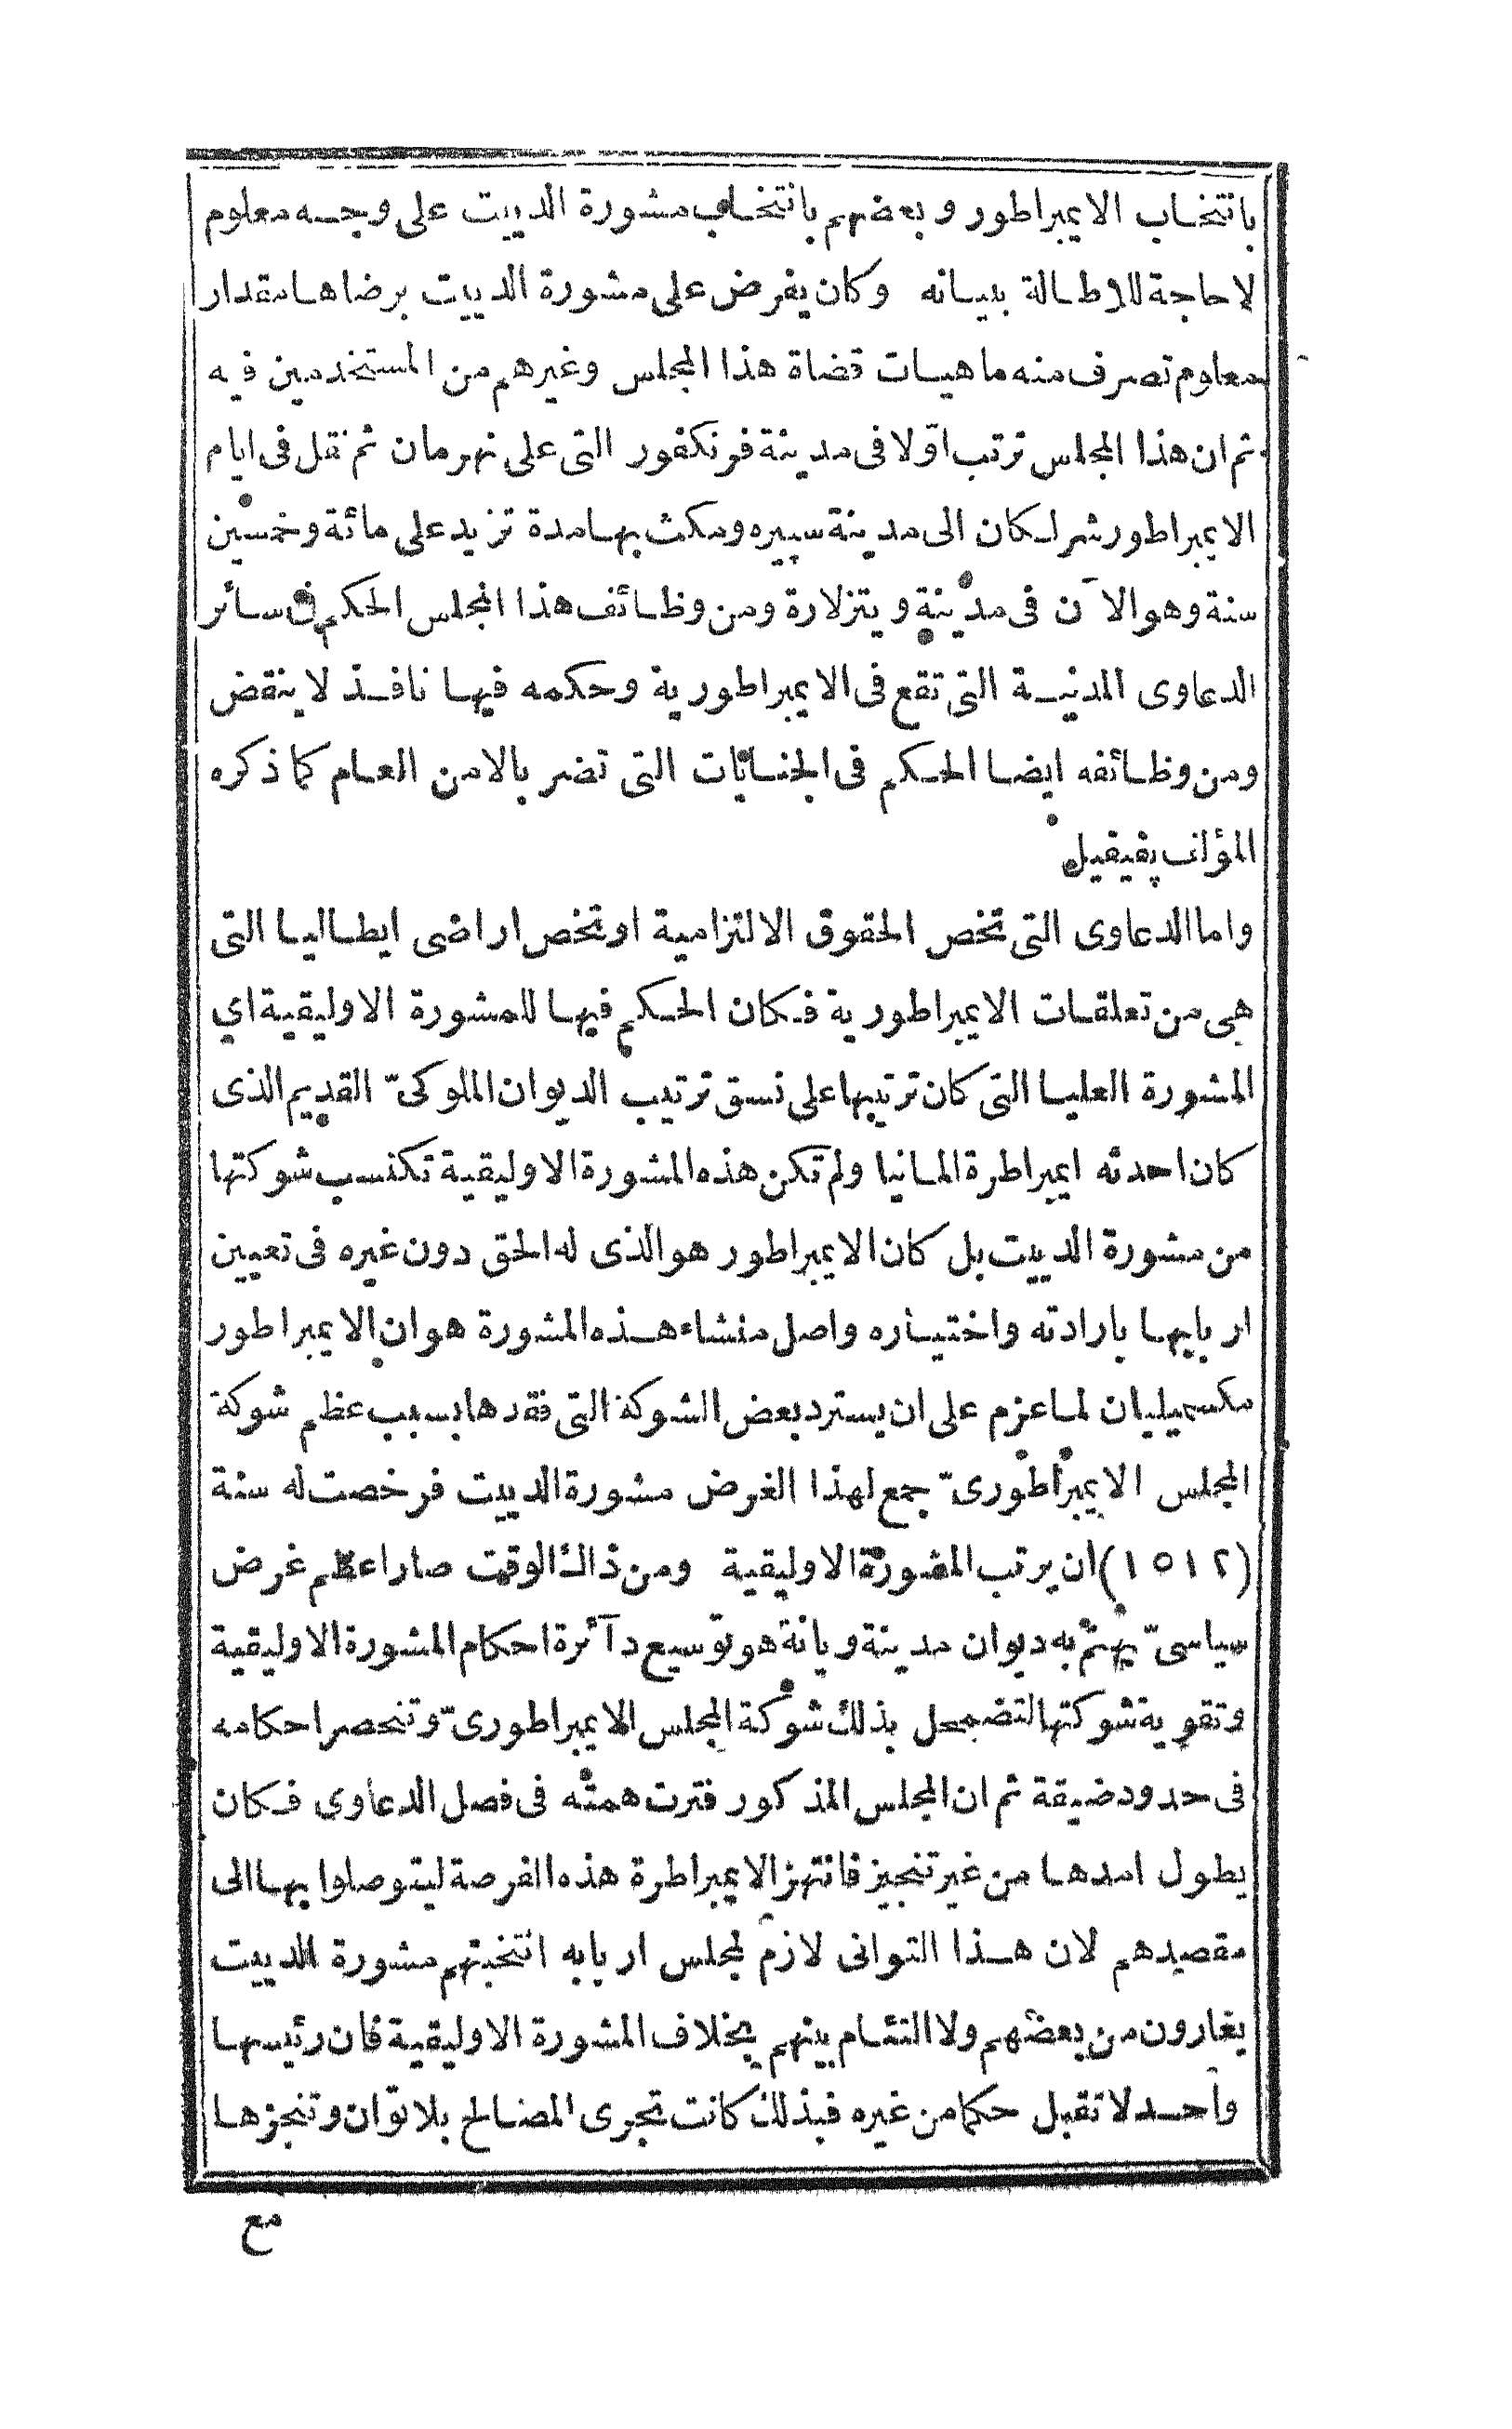 بانتخاب الايمبراطور وبعضهم بانتخاب مشورة الدييت على وجه معلوم
لا حاجة للاطالة ببيانه وكان يفرض على مشورة الدييت برضاها مقدار
معلوم تصرف منه ماهيات قضاة هذا المجلس وغيرهم من المستخدمين فيه
ثم ان هذا المجلس ترتب اوّلا فى مدينة فرنكفور التى على نهر مان ثم نقل فى ايام
الايمبراطور شرلكان الى مدينة سپيره ومكث بها مدة تزيد على مائة وخمسين
سنة وهو الآن فى مدينة ويتزلارة ومن وظائف هذا المجلس الحكم فى سائر
الدعاوى المدنية التى تقع فى الايمبراطورية وحكمه فيها نافذ لا ينقض
ومن وظائفه ايضا الحكم فى الجنايات التى تضر بالامن العام كما ذكره
المؤلف پفيفيل
واما الدعاوى التى تخص الحقوق الالتزامية او تخص اراضى ايطاليا التى
هى من تعلقات الايمبراطورية فكان الحكم فيها للمشورة الاوليقية اي
المشورة العليا التى كان ترتيبها على نسق ترتيب الديوان الملوكىّ القديم الذى
كان احدثه ايمبراطرة المانيا ولم تكن هذه المشورة الاوليقية تكتسب شوكتها
من مشورة الدييت بل كان الايمبراطور هو الذى له الحق دون غيره فى تعيين
اربابها بارادته واختياره واصل منشاء هذه المشورة هو ان الايمبراطور
مكسيميليان لما عزم على ان يسترد بعض الشوكة التى فقدها بسبب عظم شوكة
المجلس الايمبراطورىّ جمع لهذا الغرض مشورة الدييت فرخصت له سنة
(١٥١٢) ان يرتب المشورة الاوليقية ومن ذاك الوقت صار اعظم غرض
سياسىّ يهتمّ به ديوان مدينة ويانة هو توسيع دآئرة احكام المشورة الاوليقية
وتقوية شوكتها لتضمحل بذلك شوكة المجلس الايمبراطورىّ وتنحصر احكامه
فى حدود ضيقة ثم ان المجلس المذكور فترت همته فى فصل الدعاوى فكان
يطول امدها من غير تنجيز فانتهز الايمبراطرة هذه الفرصة ليتوصلوا بها الى
مقصدهم لان هذا التوانى لازم لمجلس اربابه انتخبتهم مشورة الدييت
يغارون من بعضهم ولا التئام بينهم بخلاف المشورة الاوليقية فان رئيسها
واحد لا تقبل حكما من غيره فبذلك كانت تجرى المصالح بلا توان وتنجزها
مع